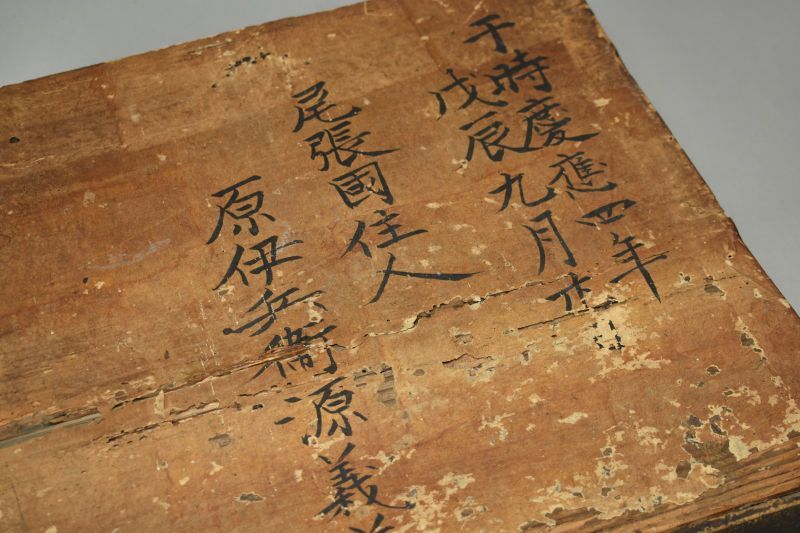 于時慶應四年
戊辰九月吉日
尾張國住人
原伊兵衛源義